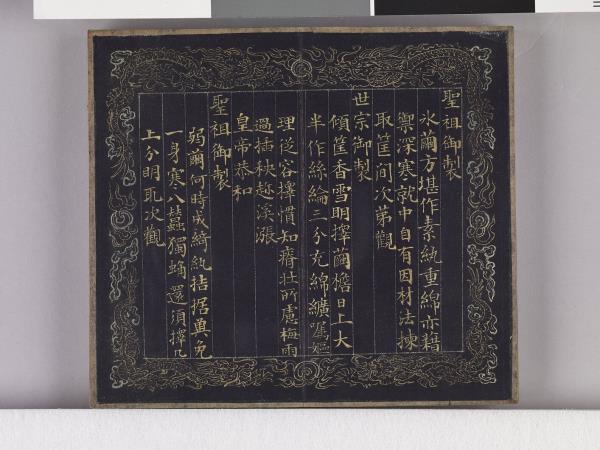 聖祖御製
氷繭方堪作素紈重綿亦藉
禦深寒就中自有因材法揀
取筐間次苐觀
世宗御製
傾筐香雪明擇繭檐日上大
半作絲綸三分充綿纊嘱嫗
理從容擇慣知瘠壯所慮梅雨
過插秧趁溪漲
皇帝恭和
聖祖御製
筠繭何時成綺紈拮据奠免
一身寒八蠶獨蛹還須擇几
上分明取次觀